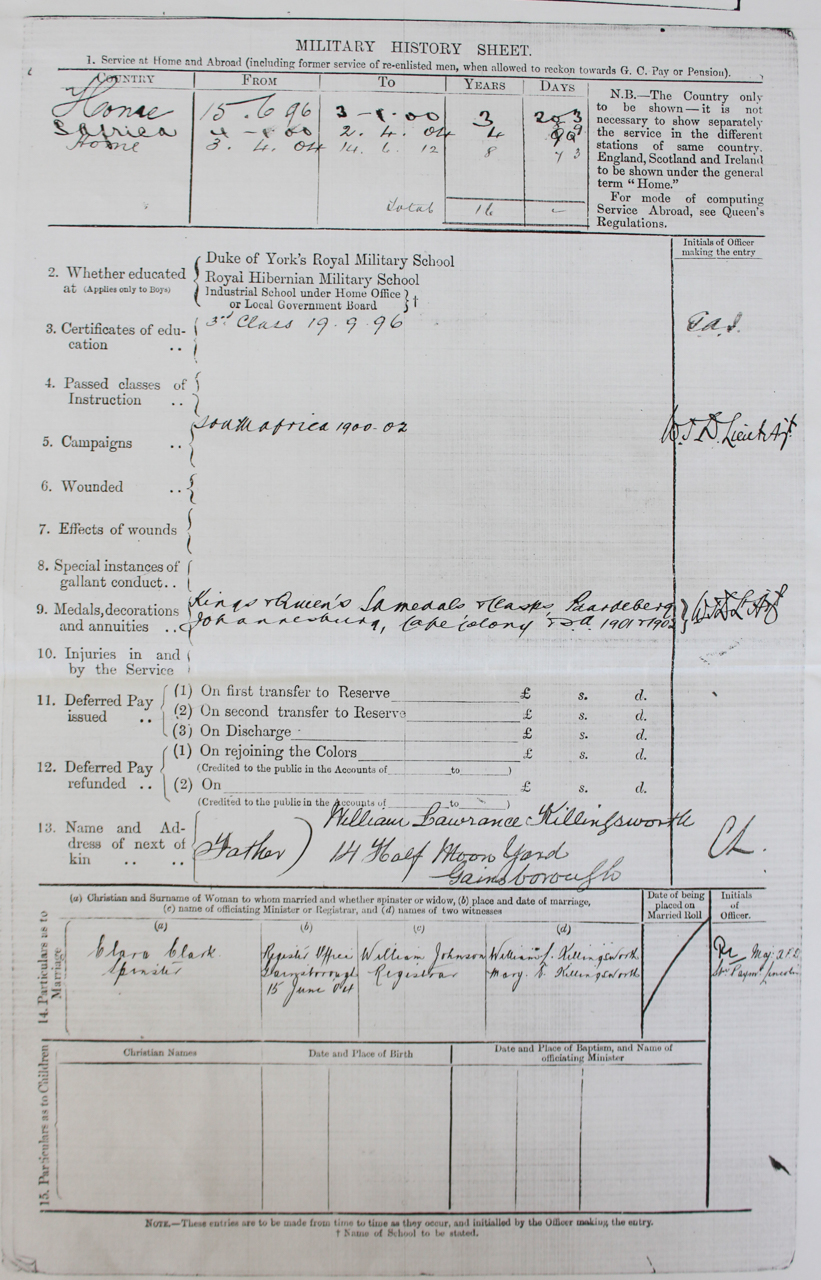 MILITARY HISTORY SHEET.
1. Service at Home and Abroad (including former service of re-enlisted men, when allowed to reckon towards G. C. Pay or Pension).
COUNTRY FROM TO YEARS DAYS
Home 15. 6 96 3 - 1 - 00 3 203
S Africa 4 - 1. 00 2. 4. 04 4
Home 3. 4. 04 14. 6. 12 8 73
Total 16
N.B.—The Country only
to be shown—it is not
necessary to show separately
the service in the different
stations of same country.
England, Scotland and Ireland
to be shown under the general
term "Home."
For mode of computing
Service Abroad, see Queen's
Regulations.
Initials of Officer
making the entry
2. Whether educated
at (Applies only to Boys)
Duke of York's Royal Military School
Royal Hibernian Military School
Industrial School under Home Office
or Local Government Board }†
3. Certificates of edu-
cation ..
3rd Class 19. 9. 96
4. Passed classes of
Instruction ..
5. Campaigns ..
South Africa 1900-02
Lieut
6. Wounded ..
7. Effects of wounds
8. Special instances of
gallant conduct..
9. Medals, decorations
and annuities ..
Kings & Queen's SA medals & Clasps, Paardeberg
Johannesburg, Cape Colony & S.A. 1901 & 1902
10. Injuries in and
by the Service
11. Deferred Pay
issued ..
(1) On first transfer to Reserve £ s. d.
(2) On second transfer to Reserve £ s. d.
(3) On Discharge £ s. d.
12. Deferred Pay
refunded ..
(1) On rejoining the Colors £ s. d.
(Credited to the public in the Accounts of to )
(2) On £ s. d.
(Credited to the public in the Accounts of to )
13. Name and Ad-
dress of next of
kin .. ..
Father )
William Lawrance Killingsworth
14 Half Moon Yard
Gainsborough
14. Particulars as to
Marriage
(a) Christian and Surname of Woman to whom married and whether spinster or widow, (b) place and date of marriage,
(c) name of officiating Minister or Registrar, and (d) names of two witnesses
Date of being
placed on
Married Roll
Initials
of
Officer.
(a) (b) (c) (d)
Clara Clark
Spinster
Register Office
Gainsborough
15 June 04
William Johnson
Registrar
William L. Killingsworth
Mary. E. Killingsworth
15. Particulars as to Children
Christian Names
Date and Place of Birth
Date and Place of Baptism, and Name of
officiating Minister
NOTE.—These entries are to be made from time to time as they occur, and initialled by the Officer making the entry.
† Name of School to be stated.